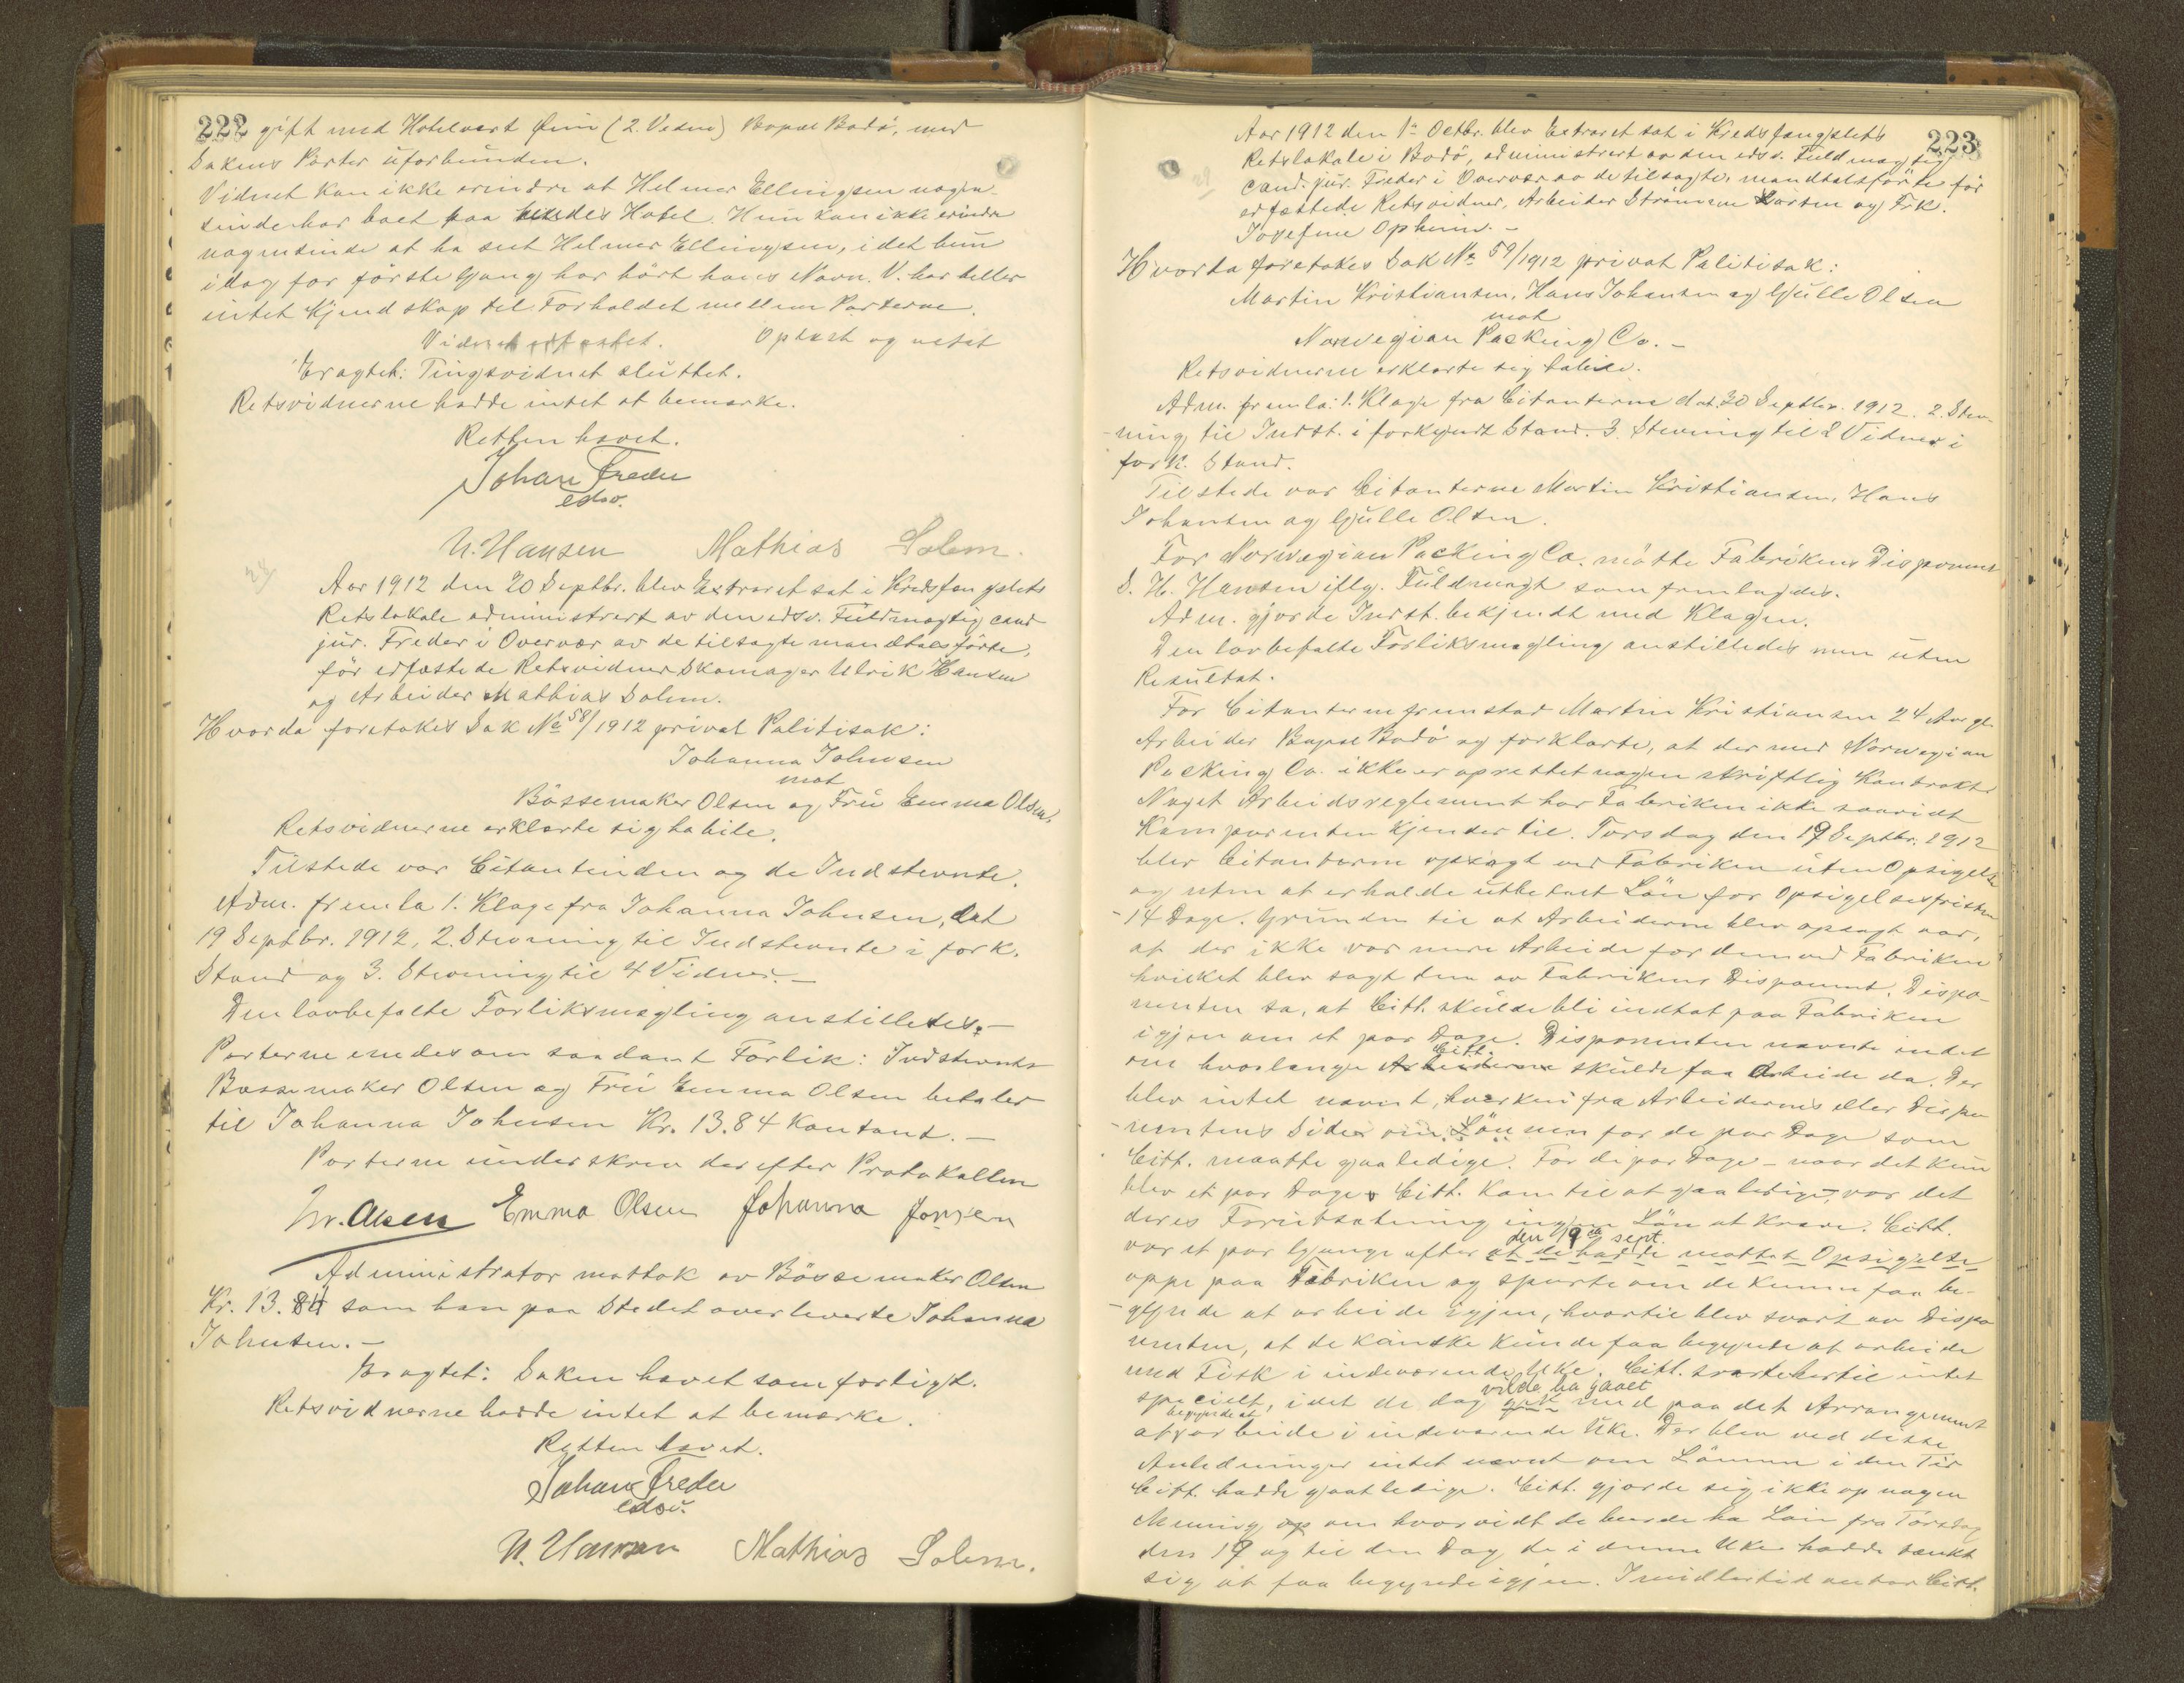 222 gift med Hotelvert (2. Vedne) Bopæl Bodö, med
Sakens Parter uforbunden.
Vidnet kan ikke erindre at Helmer Ellingsen nogen-
sinde har boet paa hendes Hotel. Hun kan ikke erindre
nogensinde at ha seet Helmer Ellingsen, idet hun
idag for förste Gang har hört hans Navn. V. har heller
intet Kjendskap til Forholdet mellem Parterne.
Vidnet edfæstet. Oplæst og vedtat
Eragtet: Tingsvidnet sluttet.
Retsvidnerne hadde intet at bemærke.
Retten hævet.
Johan Freder
edsv.
U. Hansen Mathias Solem.
Aar 1912 den 20 Septbr. blev Extraret sat i Kredsfængslets
Retslokale administrert av den edsv. Fuldmægtig cand
jur. Freder i Overvær av de tilsagte mandtalsförte,
för edfæstede Retsvidner Skomager Ulrik Hansen
og Arbeider Mathias Solem.
Hvorda foretokes Sak No 58/1912 privat Politisak:
Johanna Johnsen
mot
Bössemaker Olsen og Fru Emma Olsen.
Retsvidnerne erklærte sig habile.
Tilstede var Citantinden og de Indstevnte.
Adm. fremla 1. Klage fra Johanna Johnsen, dat
19 Septbr. 1912, 2. Stevning til Indstevnte i fork.
Stand og 3. Stevning til 4 Vidner. -
Den lovbefalte Forliksmægling anstilledes. -
Parterne enedes om saadant Forlik: Indstevnte
Bössemaker Olsen og Fru Emma Olsen betaler
til Johanna Johnsen Kr. 13.84 kontant. -
Parterne underskrev derefter Protokollen
Olsen Emma Olsen Johanna Jonsen
Administrator mottok av Bössemaker Olsen
Kr. 13.84 som han paa Stedet overleverte Johanna
Johnsen. -
Eragtet: Saken hævet som forligt.
Retsvidnerne hadde intet at bemærke.
Retten hævet.
Johan Freder
edsv.
U. Hansen Mathias Solem.
223
Aar 1912 den 1ste Octbr. blev Extraret sat i Kredsfængslets
Retslokale i Bodö, administrert av den edsv. Fuldmægtig
cand. jur. Freder i Overvær av de tilsagte, mandtalsförte för
edfæstede Retsvidner, Arbeider Strömme Larsen og Frk.
Josefine Opheim. -
Hvorda foretokes Sak No 59/1912 privat Politisak:
Martin Kristiansen, Hans Johansen og Gulle Olsen
mot
Norwegian Packing Co. -
Retsvidnerne erklærte sig habile.
Adm. fremla: 1. Klage fra Citanterne dat. 30 Septbr. 1912. 2. Stev-
-ning til Indst. i forkyndt Stand. 3. Stevning til 2 Vidner i
fork. Stand.
Tilstede var Citanterne Martin Kristiansen, Hans
Johansen og Gulle Olsen.
For Norwegian Packing Co. mötte Fabrikens Disponent
S. H. Hansen iflg. Fuldmagt som fremlagdes.
Adm. gjorde Indst. bekjendt med Klagen.
Den lovbefalte Forliksmægling anstilledes men uten
Resultat.
For Citanterne fremstod Martin Kristiansen 24 Aar gl.
Arbeider Bopæl Bodö og forklarte, at der med Norwegian
Packing Co. ikke er oprettet nogen skriftlig Kontrakt
Noget Arbeidsreglement har Fabriken ikke saavidt
Komparenten kjender til. Torsdag den 19 Septbr. 1912
blev Citanterne opsagt ved Fabriken uten Opsigelse
og uten at erholde utbetalt Lön for Opsigelsesfristen
- 14 Dage. Grunden til at Arbeiderne blev opsagt var,
at der ikke var mere Arbeide for dem ved Fabriken
hvilket blev sagt dem av Fabrikens Disponent. Dispo-
nenten sa, at Citt. skulde bli indtat paa Fabriken
igjen om et par Dage. Disponenten nævnte intet
om hvorlænge Arbeiderne Citt. skulde faa Arbeide da. Der
blev intet nævnt, hverken fra Arbeidernes eller Dispo
-nentens Side om Lönnen for de par Dage som
Citt. maatte gaa ledige. For de par Dage - naar det kun
blev et par Dage Citt. kom til at gaa ledige, var det
deres Forutsætning ingen Lön at kræve. Citt.
var et par Gange efter at de hadde mottat Opsigelse den 19de sept.
oppe paa Fabriken og spurte om de kunne faa be-
-gynde at arbeide igjen, hvortil blev svart av Dispo
nenten, at de kanske kunde faa begynde at arbeide
med Fisk i indeværende Uke. Citt. svarte hertil intet
specielt, idet de dog gik vilde ha gaaet med paa det Arrangement
at begynde at arbeide i indeværende Uke. Der blev ved disse
Anledninger intet nævnt om Lönnen i den Tid
Citt. hadde gaat ledige. Citt. gjorde sig ikke op nogen
Mening op om hvorvidt de burde ha Lön fra Torsdag
den 19 og til den Dag de i denne Uke hadde tænkt
sig at faa begynde igjen. Imidlertid antar Citt.